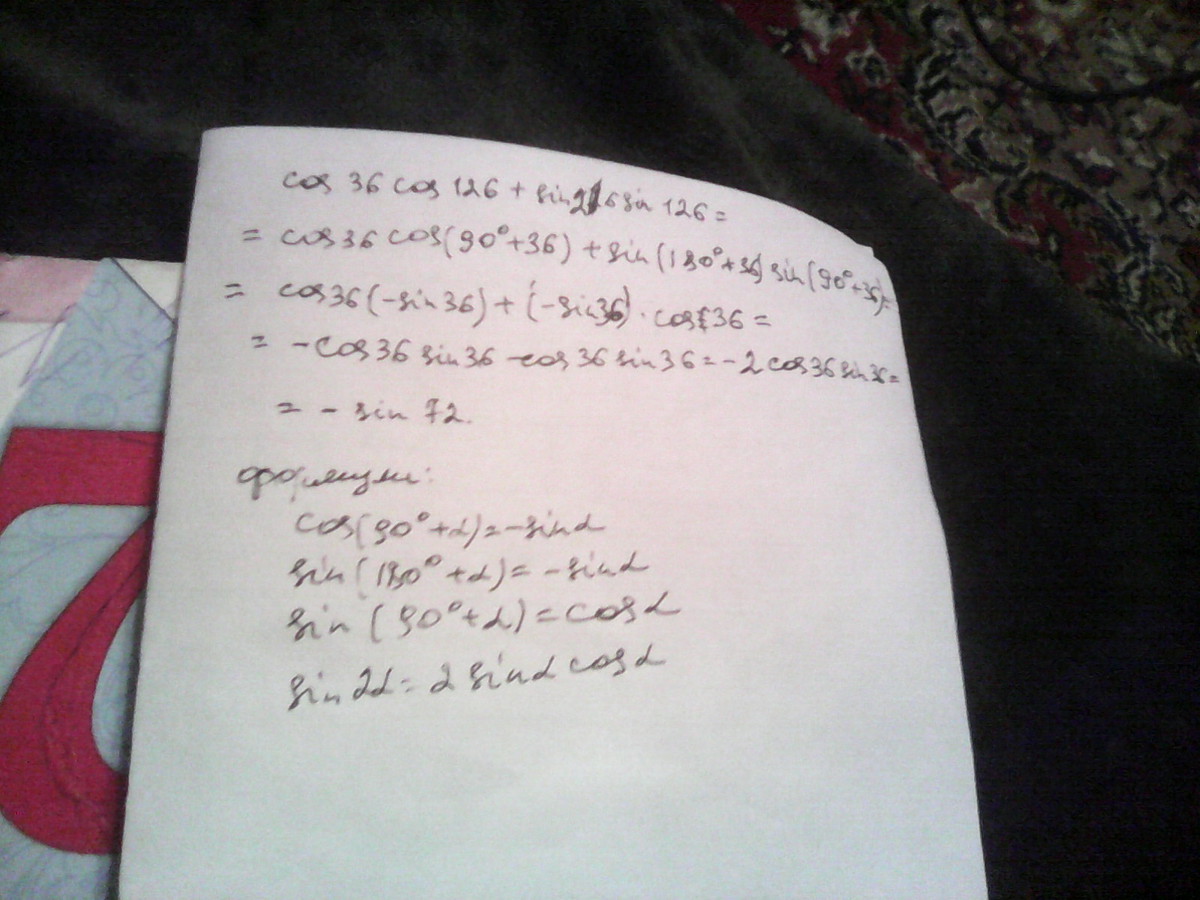 cos 36 cos 126 + sin 216 sin 126 =
= cos 36 cos(90° + 36) + sin (180° + 36) sin (90° + 36) =
= cos 36 (-sin 36) + (-sin 36) · cos 36 =
= - cos 36 sin 36 - cos 36 sin 36 = - 2 cos 36 sin 36 =
= - sin 72.
формулы:
cos(90° + α) = - sin α
sin (180° + α) = - sin α
sin (90° + α) = cos α
sin 2α = 2 sin α cos α